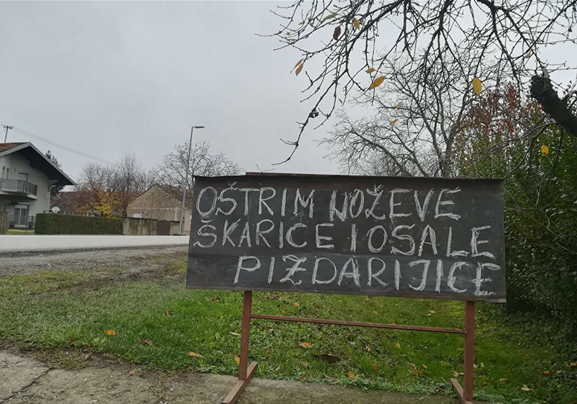 OŠTRIM NOŽEVE
ŠKARICE I OSALE
PIZDARIJICE